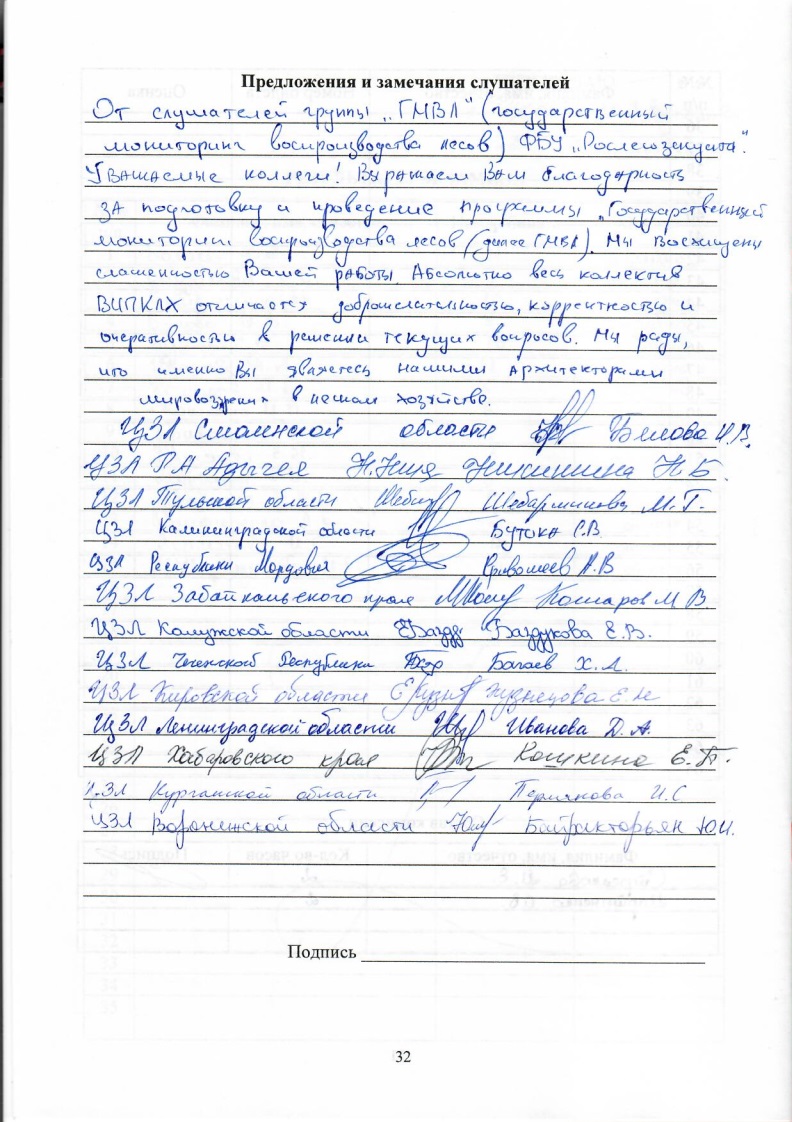 Предложения и замечания слушателей
От слушателей группы „ГМВЛ" (государственный
мониторинг воспроизводства лесов) ФБУ „Рослесозащита".
Уважаемые коллеги! Выражаем Вам благодарность
за подготовку и проведение программы „Государственный
мониторинг воспроизводства лесов (далее ГМВЛ). Мы восхищены
слаженностью Вашей работы. Абсолютно весь коллектив
ВИПКЛХ отличается доброжелательностью, корректностью и
оперативностью в решении текущих вопросов. Мы рады,
что именно Вы являетесь нашими архитекторами
мировоззрения в лесном хозяйстве.
ЦЗЛ Смоленской области Белова И.В.
ЦЗЛ РА Адыгея Никишина Н.Б.
ЦЗЛ Тульской области М.Г.
ЦЗЛ Калининградской области Бутока С.В.
ЦЗЛ Республики Мордовия А.В
ЦЗЛ Забайкальского края Комаров М.В.
ЦЗЛ Калужской области Баздукова Е.В.
ЦЗЛ Чеченской Республики Багаев Х.Л.
ЦЗЛ Кировской области Кузнецова Е.Н
ЦЗЛ Ленинградской области Иванова Д.А.
ЦЗЛ Хабаровского края Кошкина Е.П.
ЦЗЛ Курганской области Пермякова И.С
ЦЗЛ Воронежской области Байракторьян Ю.И.
Подпись
32